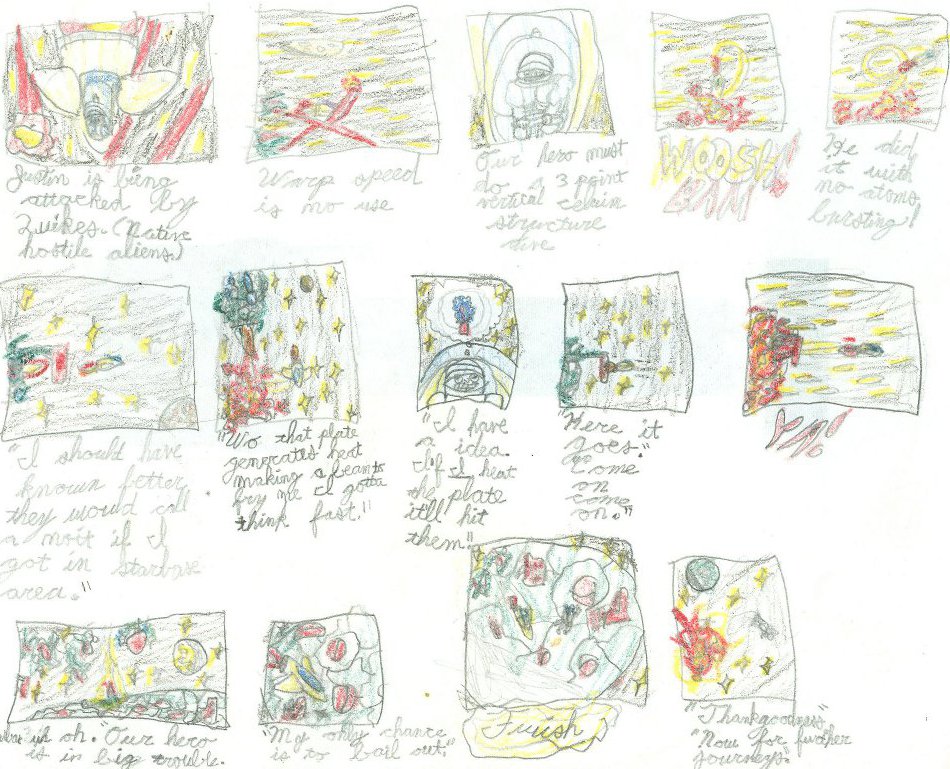 Justin is being
attacked by
Zuikes. (Native
hostile aliens.)
Warp speed
is no use
Our hero must
do a 3 point
vertical
structure
dive
WOOSH
BAM!
He did
it with
no atoms
bursting!
"I should have
known better
they would call
a mott if I
got in starbase
area."
"Wo that plate
generates heat
making a beam to
fry me I gotta
think fast!"
"I have
a idea.
If I heat
the plate
itll hit
them"
"Here it
goes."
"Come
on
come
on."
oh. "Our hero
is in big trouble.
"My only chance
is to bail out."
Fwish
"Thankgoodness"
"Now for further
journeys."